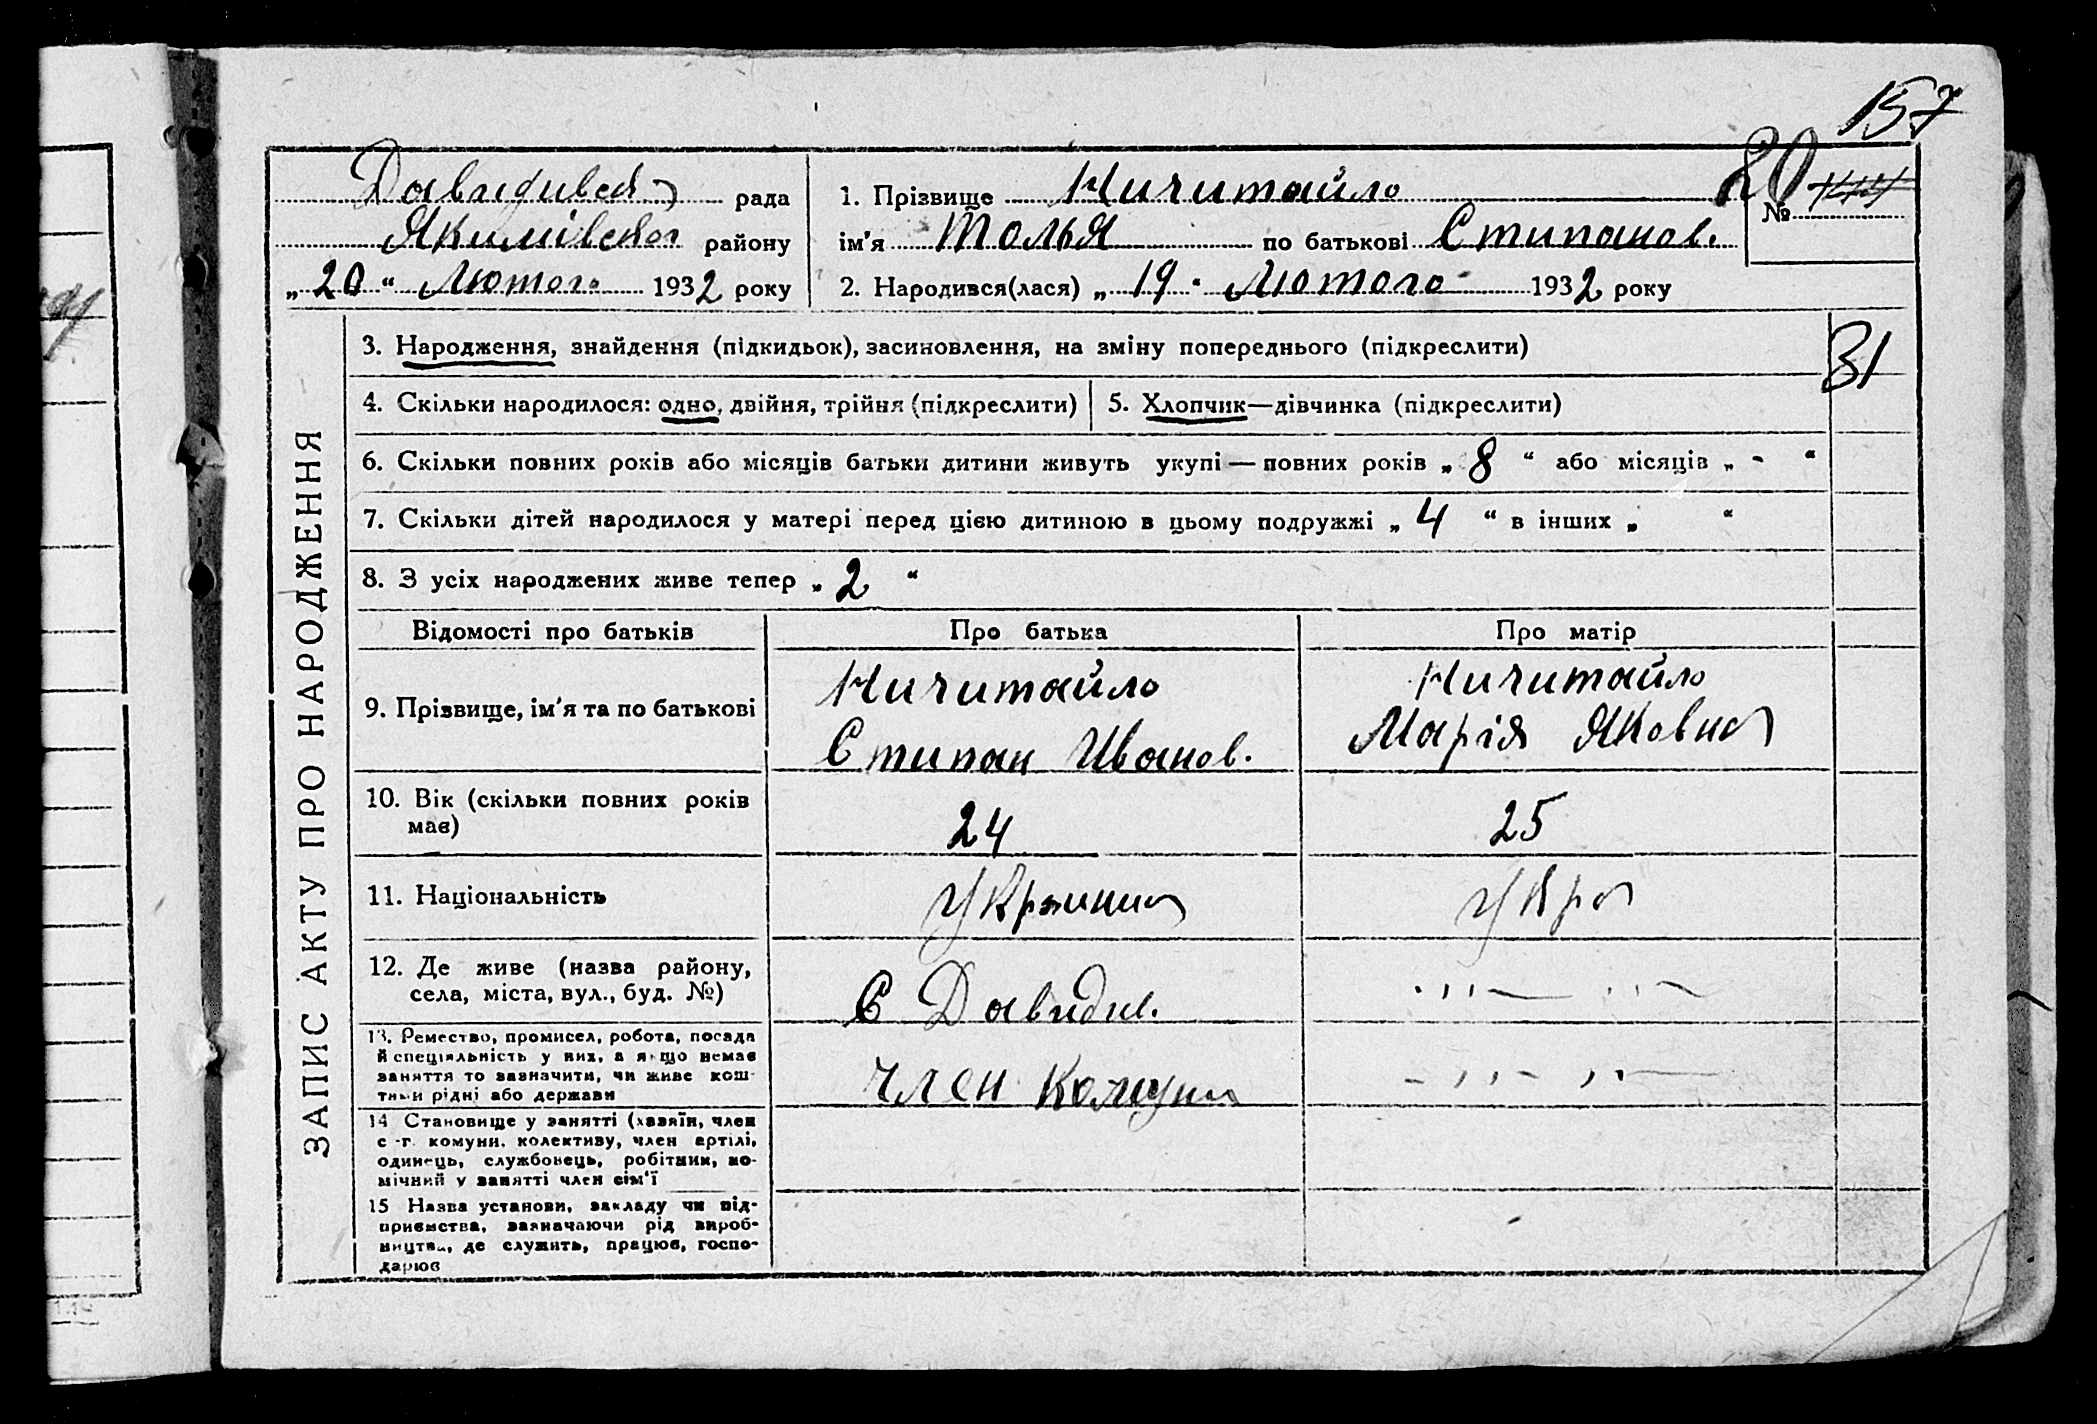 157
Давидивська рада
Якимівського району
„20“ Лютого 1932 року
1. Прізвище Ничитайло
ім'я Толья по батькові Стипанов.
2. Народився(лася) „19“ Лютого 1932 року
20 №
ЗАПИС АКТУ ПРО НАРОДЖЕННЯ
3. Народження, знайдення (підкидьок), засиновлення, на зміну попереднього (підкреслити)
31
4. Скільки народилося: одно, двійня, трійня (підкреслити)
5. Хлопчик—дівчинка (підкреслити)
6. Скільки повних років або місяців батьки дитини живуть укупі — повних років „8“ або місяців „-“
7. Скільки дітей народилося у матері перед цією дитиною в цьому подружжі „4“ в інших „ “
8. З усіх народжених живе тепер „2“
Відомості про батьків Про батька Про матір
9. Прізвище, ім'я та по батькові
Ничитайло
Стипан Иванов.
Ничитайло
Марія Яковна
10. Вік (скільки повних років
має)
24
25
11. Національність
Украинка
Укра
12. Де живе (назва району,
села, міста, вул., буд. №)
С Давидив.
13. Ремество, промисел, робота, посада
й спеціяльність у них, а якщо немає
заняття то зазначити, чи живе кош-
тами рідні або держави
Член Комуни
14 Становище у занятті (хазяїн, член
с.-г. комуни, колективу, член артілі,
одинець, службовець, робітник, по-
мічний у занятті член сім'ї
15 Назва установи, закладу чи під-
приємства, зазначаючи рід вироб-
ництва, де служить, працює, госпо-
дарює